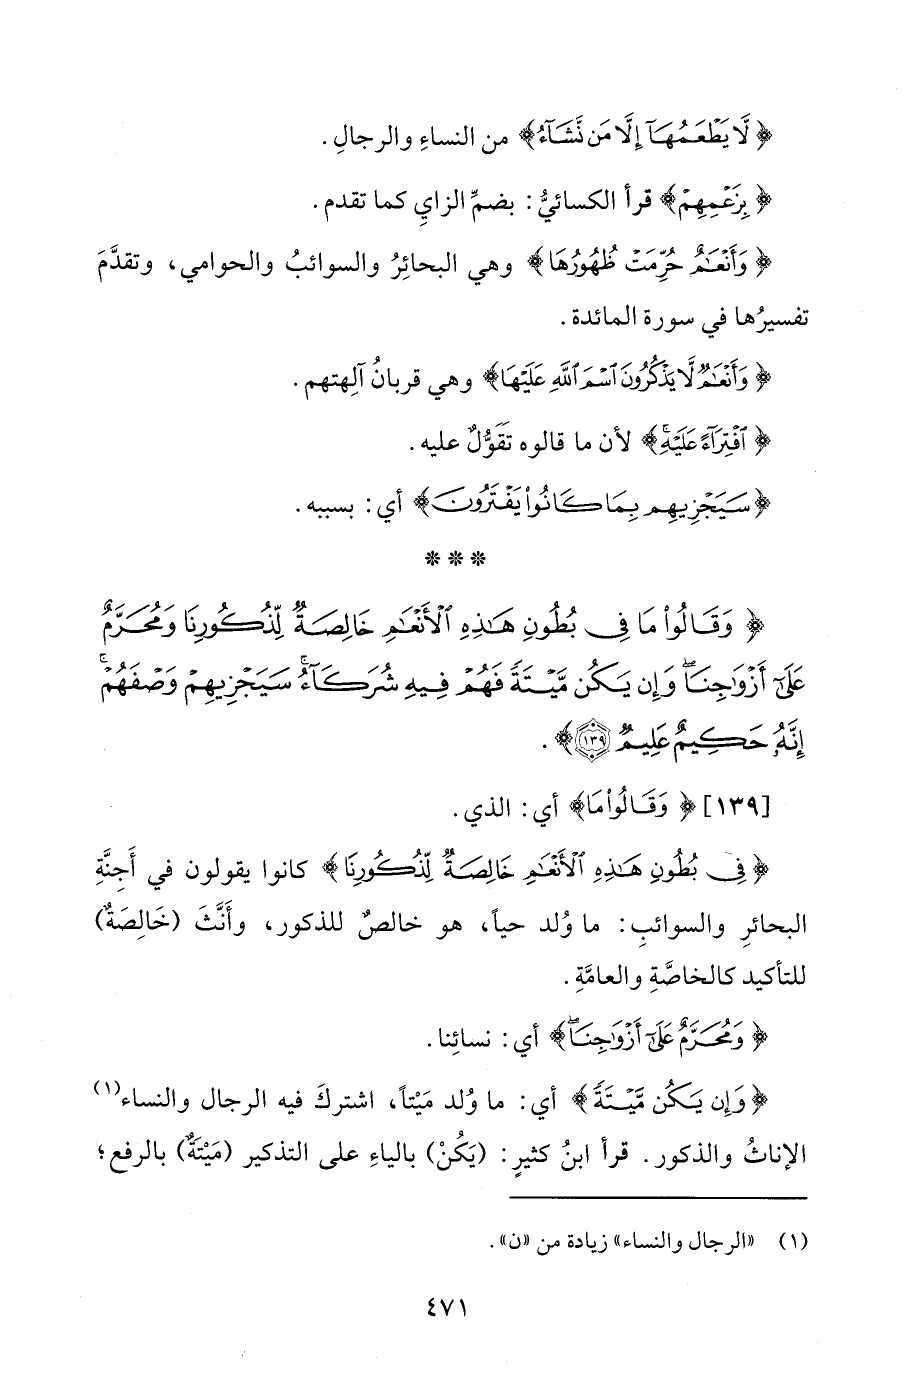 ﴿ لَّا يَطْعَمُهَآ إِلَّا مَن نَّشَآءُ﴾ من النساءِ والرجالِ.
﴿ بِزَعْمِهِمْ﴾ قرأ الكسائيُّ: بضمِّ الزايِ كما تقدم.
﴿ وَأَنْعَٰمٌ حُرِّمَتْ ظُهُورُهَا﴾ وهي البحائِرُ والسوائبُ والحوامي، وتقدَّمَ
تفسيرُها في سورة المائدة.
﴿ وَأَنْعَٰمٌ لَّا يَذْكُرُونَ ٱسْمَ ٱللَّهِ عَلَيْهَا﴾ وهي قربانُ آلهتهم.
﴿ ٱفْتِرَآءً عَلَيْهِۚ﴾ لأن ما قالوه تَقَوُّلٌ عليه.
﴿سَيَجْزِيهِم بِمَا كَانُوا۟ يَفْتَرُونَ﴾ أي: بسببه.
***
﴿ وَقَالُوا۟ مَا فِى بُطُونِ هَٰذِهِ ٱلْأَنْعَٰمِ خَالِصَةٌ لِّذُكُورِنَا وَمُحَرَّمٌ
عَلَىٰٓ أَزْوَٰجِنَاۖ وَإِن يَكُن مَّيْتَةً فَهُمْ فِيهِ شُرَكَآءُۚ سَيَجْزِيهِمْ وَصْفَهُمْۚ
إِنَّهُۥ حَكِيمٌ عَلِيمٌ ۝١٣٩﴾.
[١٣٩] ﴿ وَقَالُوا۟ مَا﴾ أي: الذي.
﴿ فِى بُطُونِ هَٰذِهِ ٱلْأَنْعَٰمِ خَالِصَةٌ لِّذُكُورِنَا﴾ كانوا يقولون في أَجِنَّةِ
البحائرِ والسوائبِ: ما وُلد حياً، هو خالصٌ للذكور، وأَنَّثَ (خَالِصَةٌ)
للتأكيد كالخاصَّةِ والعامَّةِ.
﴿ وَمُحَرَّمٌ عَلَىٰٓ أَزْوَٰجِنَاۖ﴾ أي: نسائِنا.
﴿وَإِن يَكُن مَّيْتَةً﴾ أي: ما وُلد مَيْتاً، اشتركَ فيه الرجال والنساء(١)
الإناثُ والذكور. قرأ ابنُ كثيرٍ: (يَكُنْ) بالياءِ على التذكير (مَيْتَةٌ) بالرفع؛
(١) «الرجال والنساء» زيادة من «ن».
٤٧١